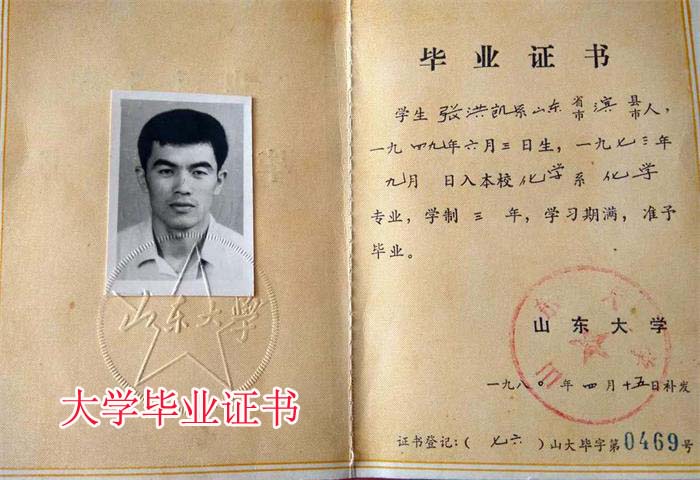 山东大学
大学毕业证书
毕业证书
学生张洪凯系山东省市滨县市人，
一九四九年六月三日生，一九七三年
九月 日入本校化学系化学
专业，学制三年，学习期满，准予
毕业。
山东大学
一九八〇年四月十五日补发
证书登记：（七六）山大毕字第0469号